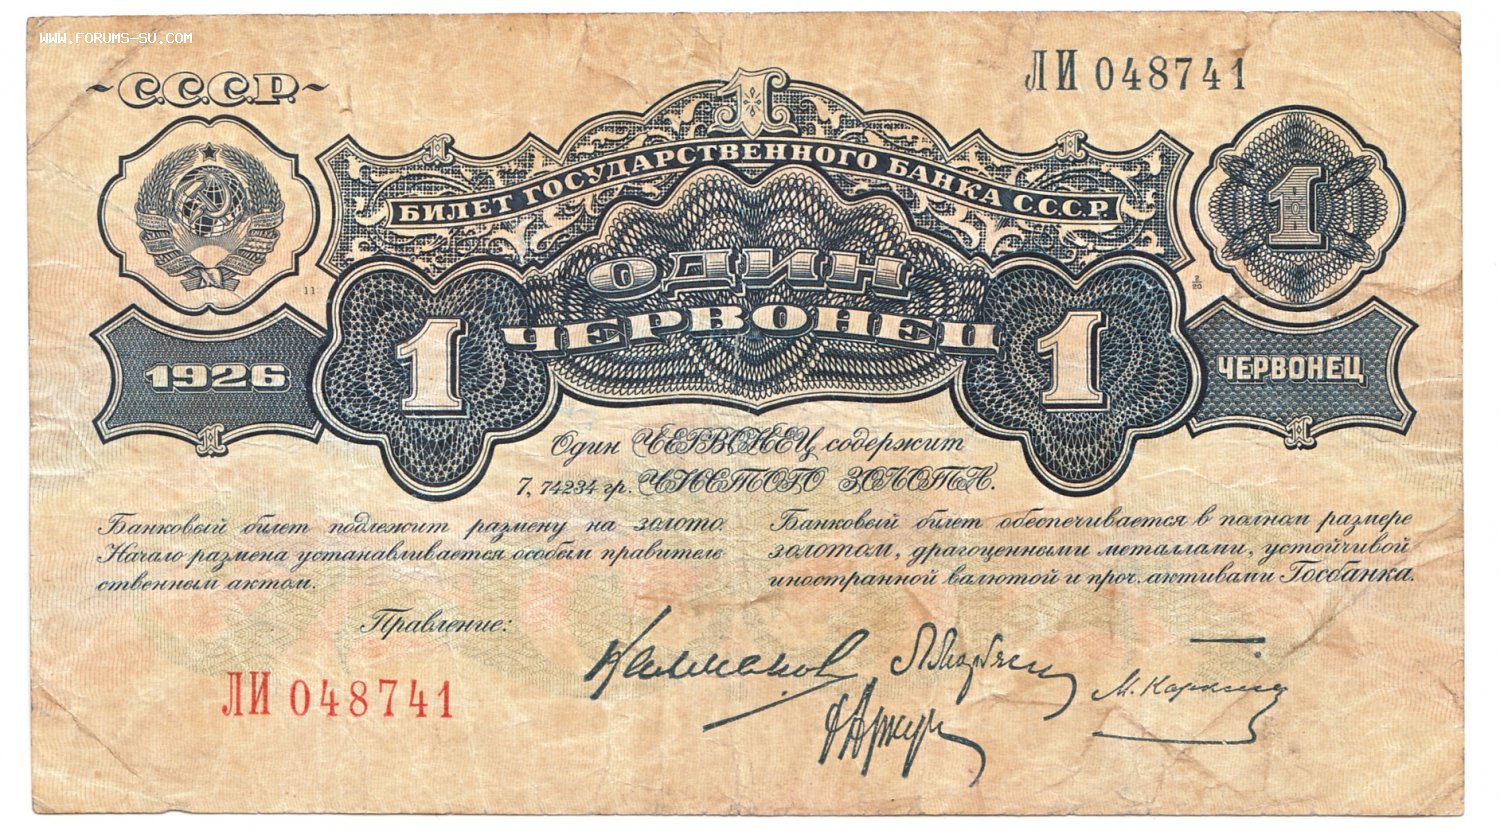 WWW.FORUMS-SU.COM
С.С.С.Р.
ЛИ 048741
1
БИЛЕТ ГОСУДАРСТВЕННОГО БАНКА С.С.С.Р.
1
ОДИН
ЧЕРВОНЕЦ
11
2/20
1
1
1926
ЧЕРВОНЕЦ
Один ЧЕРВОНЕЦ содержит
7,74234 гр. ЧИСТОГО ЗОЛОТА.
Банковый билет подлежит размену на золото.
Начало размена устанавливается особым правитель
ственным актом.
Банковый билет обеспечивается в полном размере
золотом, драгоценными металлами, устойчивой
иностранной валютой и проч. активами Госбанка.
Правление:
ЛИ 048741